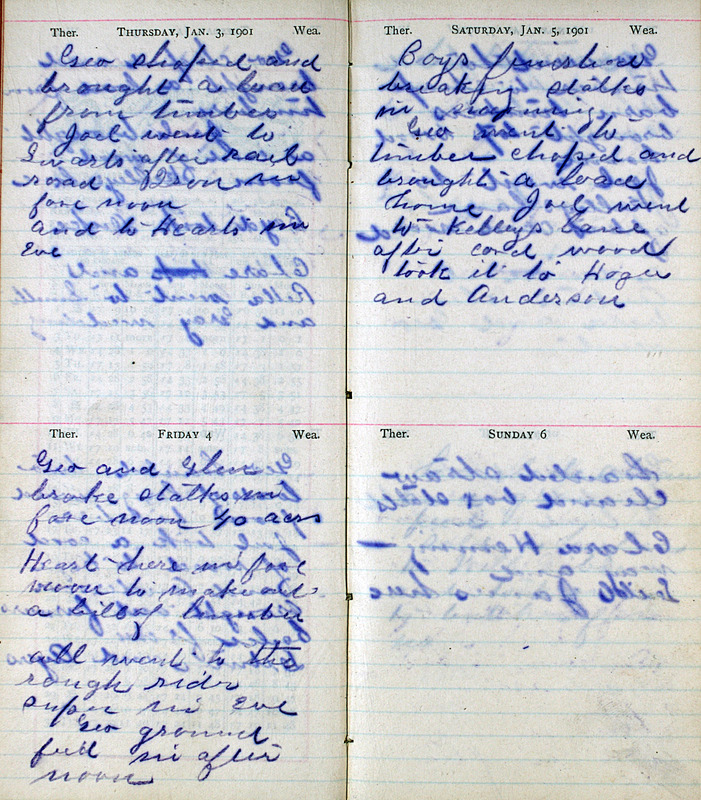 Ther. THURSDAY, JAN. 3, 1901 Wea.
Geo choped and
brought a load
from timber
Joel went to
Swarts after rail
road iron in
fore noon
and to Hearts in
Eve
Ther. FRIDAY 4 Wea.
Geo and Glen
broke stalks in
fore noon 40 acrs
Heart here in fore
noon to make out
a bill of lumber
all went to the
rough rider
super in Eve
Geo ground
feed in after
noon
Ther. SATURDAY, JAN. 5, 1901 Wea.
Boys finished
breaking stalks
in morning
Geo went to
timber choped and
brought a load
home Joel went
to Kelleys
after cord wood
took it to
and Anderson
Ther. SUNDAY 6 Wea.